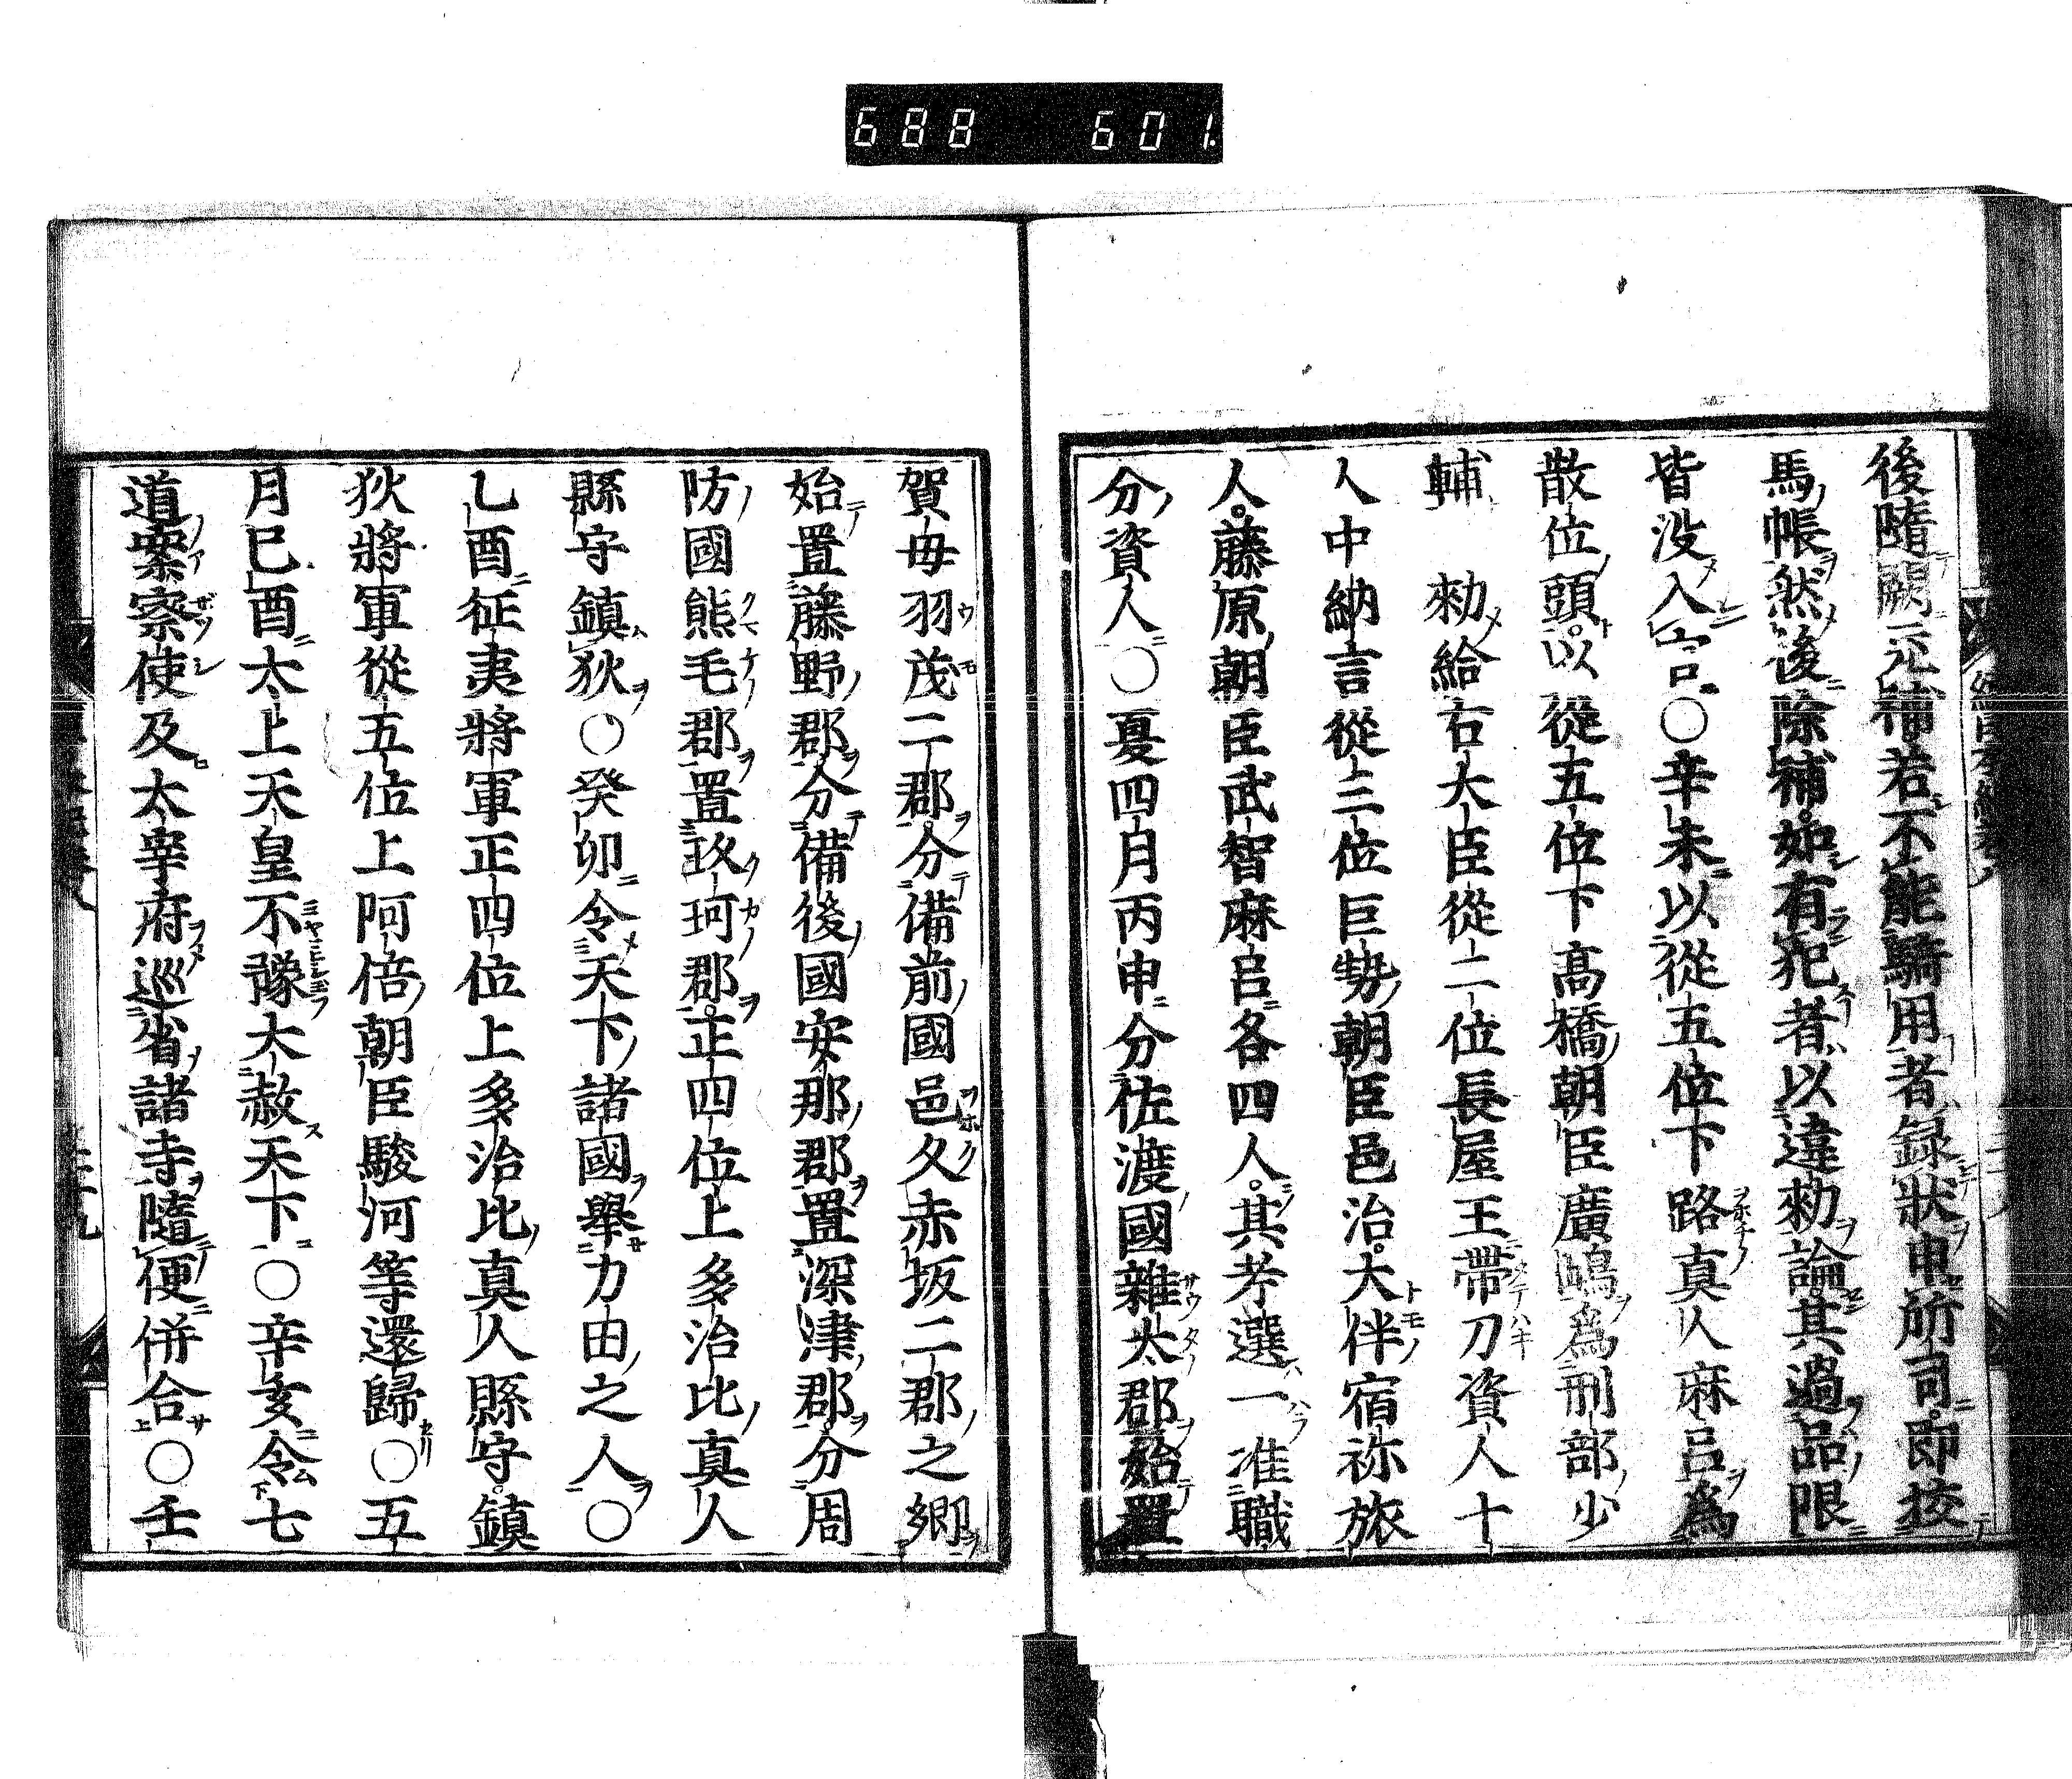 688 601
後隨闕充補若不能騎用者録狀申所司即挍
馬帳然後除補如有犯者以違勑論其過品限
皆没入官○辛未以從五位下路真人麻吕爲
散位頭以從五位下高橋朝臣廣嶋爲刑部少
輔 勑給右大臣從二位長屋王帶刀資人十
人中納言從三位巨勢朝臣邑治大伴宿祢旅
人藤原朝臣武智麻吕各四人其考選一准職
分資人○夏四月丙申分佐渡國雜太郡始置
賀母羽茂二郡分備前國邑久赤坂二郡之郷
始置藤野郡分備後國安那郡置深津郡分周
防國熊毛郡置玖珂郡正四位上多治比真人
縣守鎮狄○癸卯令天下諸國舉力田之人○
乙酉征夷將軍正四位上多治比真人縣守鎮
狄將軍從五位上阿倍朝臣駿河等還歸○五
月巳酉太上天皇不豫大赦天下○辛亥令七
道案察使及太宰府巡省諸寺隨便併合○壬